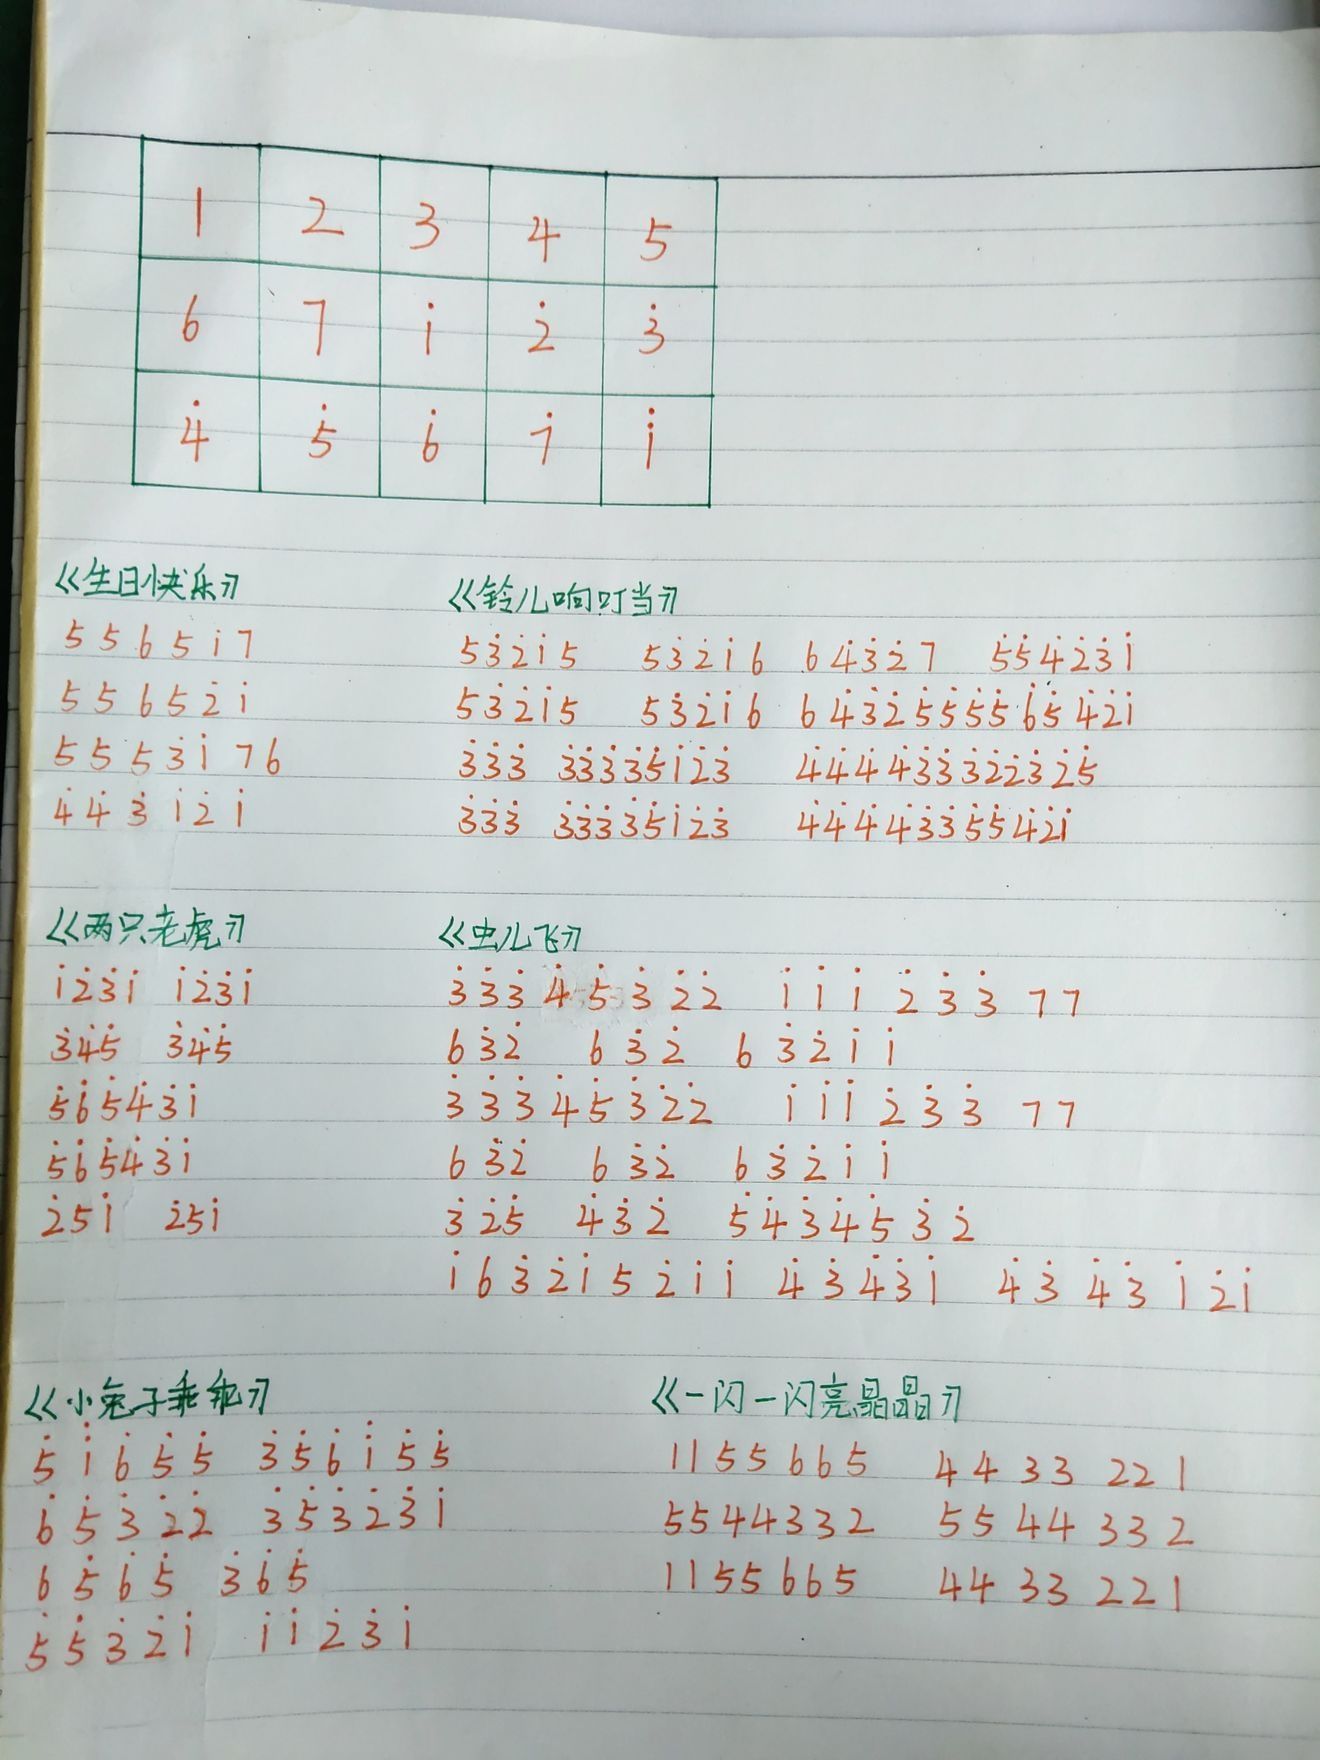 1 2 3 4 5
6 7 1̇ 2̇ 3̇
4̇ 5̇ 6̇ 7̇ 1̈
《生日快乐》
5 5 6 5 1̇ 7
5 5 6 5 2̇ 1̇
5 5 5̇ 3̇ 1̇ 7 6
4̇ 4̇ 3̇ 1̇ 2̇ 1̇
《铃儿响叮当》
53̇2̇1̇5 53̇2̇1̇6 64̇3̇2̇7 5̇5̇4̇2̇3̇1̇
53̇2̇1̇5 53̇2̇1̇6 64̇3̇2̇5̇5̇5̇5̇6̇5̇4̇2̇1̇
3̇3̇3̇ 3̇3̇3̇3̇5̇1̇2̇3̇ 4̇4̇4̇4̇3̇3̇3̇2̇2̇3̇2̇5̇
3̇3̇3̇ 3̇3̇3̇3̇5̇1̇2̇3̇ 4̇4̇4̇4̇3̇3̇5̇5̇4̇2̇1̇
《两只老虎》
1̇2̇3̇1̇ 1̇2̇3̇1̇
3̇4̇5̇ 3̇4̇5̇
5̇6̇5̇4̇3̇1̇
5̇6̇5̇4̇3̇1̇
2̇51̇ 2̇51̇
《虫儿飞》
3̇3̇3̇ 4̇ 5̇ 3̇ 2̇2̇ 1̇ 1̇ 1̇ 2̇ 3̇ 3̇ 7 7
6 3̇2̇ 6 3̇ 2̇ 6 3̇ 2̇ 1̇ 1̇
3̇ 3̇ 3̇ 4̇ 5̇ 3̇ 2̇2̇ 1̇ 1̇ 1̇ 2̇ 3̇ 3̇ 7 7
6 3̇2̇ 6 3̇2̇ 6 3̇ 2̇ 1̇ 1̇
3̇ 2̇5̇ 4̇ 3̇ 2̇ 5̇ 4̇ 3̇ 4̇ 5̇ 3̇ 2̇
1̇ 6 3̇ 2̇ 1̇ 5 2̇ 1̇ 1̇ 4̇ 3̇ 4̇ 3̇ 1̇ 4̇ 3̇ 4̇ 3̇ 1̇ 2̇ 1̇
《小兔子乖乖》
5̇ 1̈ 6̇ 5̇ 5̇ 3̇ 5̇ 6̇ 1̈ 5̇ 5̇
6̇ 5̇ 3̇ 2̇2̇ 3̇ 5̇ 3̇ 2̇ 3̇ 1̇
6 5̇ 6̇ 5̇ 3̇ 6̇ 5̇
5̇ 5̇ 3̇ 2̇ 1̇ 1̇ 1̇ 2̇ 3̇ 1̇
《一闪一闪亮晶晶》
1155665 4433 221
5544332 5544 332
1155665 4433 221